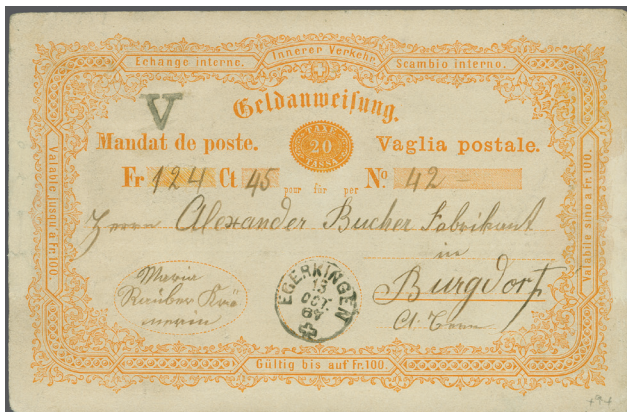 Echange interne. Innerer Verkehr. Scambio interno.
V
Geldanweisung.
Mandat de poste. Vaglia postale.
TAXE
20
TASSA
Fr 124 Ct 45 pour für per No. 42 -
Herrn Alexander Bucher Fabrikant
in
Burgdorf
Ct. Bern
Maria
Räuber Krä
merin
EGERKINGEN
13
OCT.
Valable jusqu'à Fr. 100.
Valabile sino a Fr. 100.
Gültig bis auf Fr. 100.